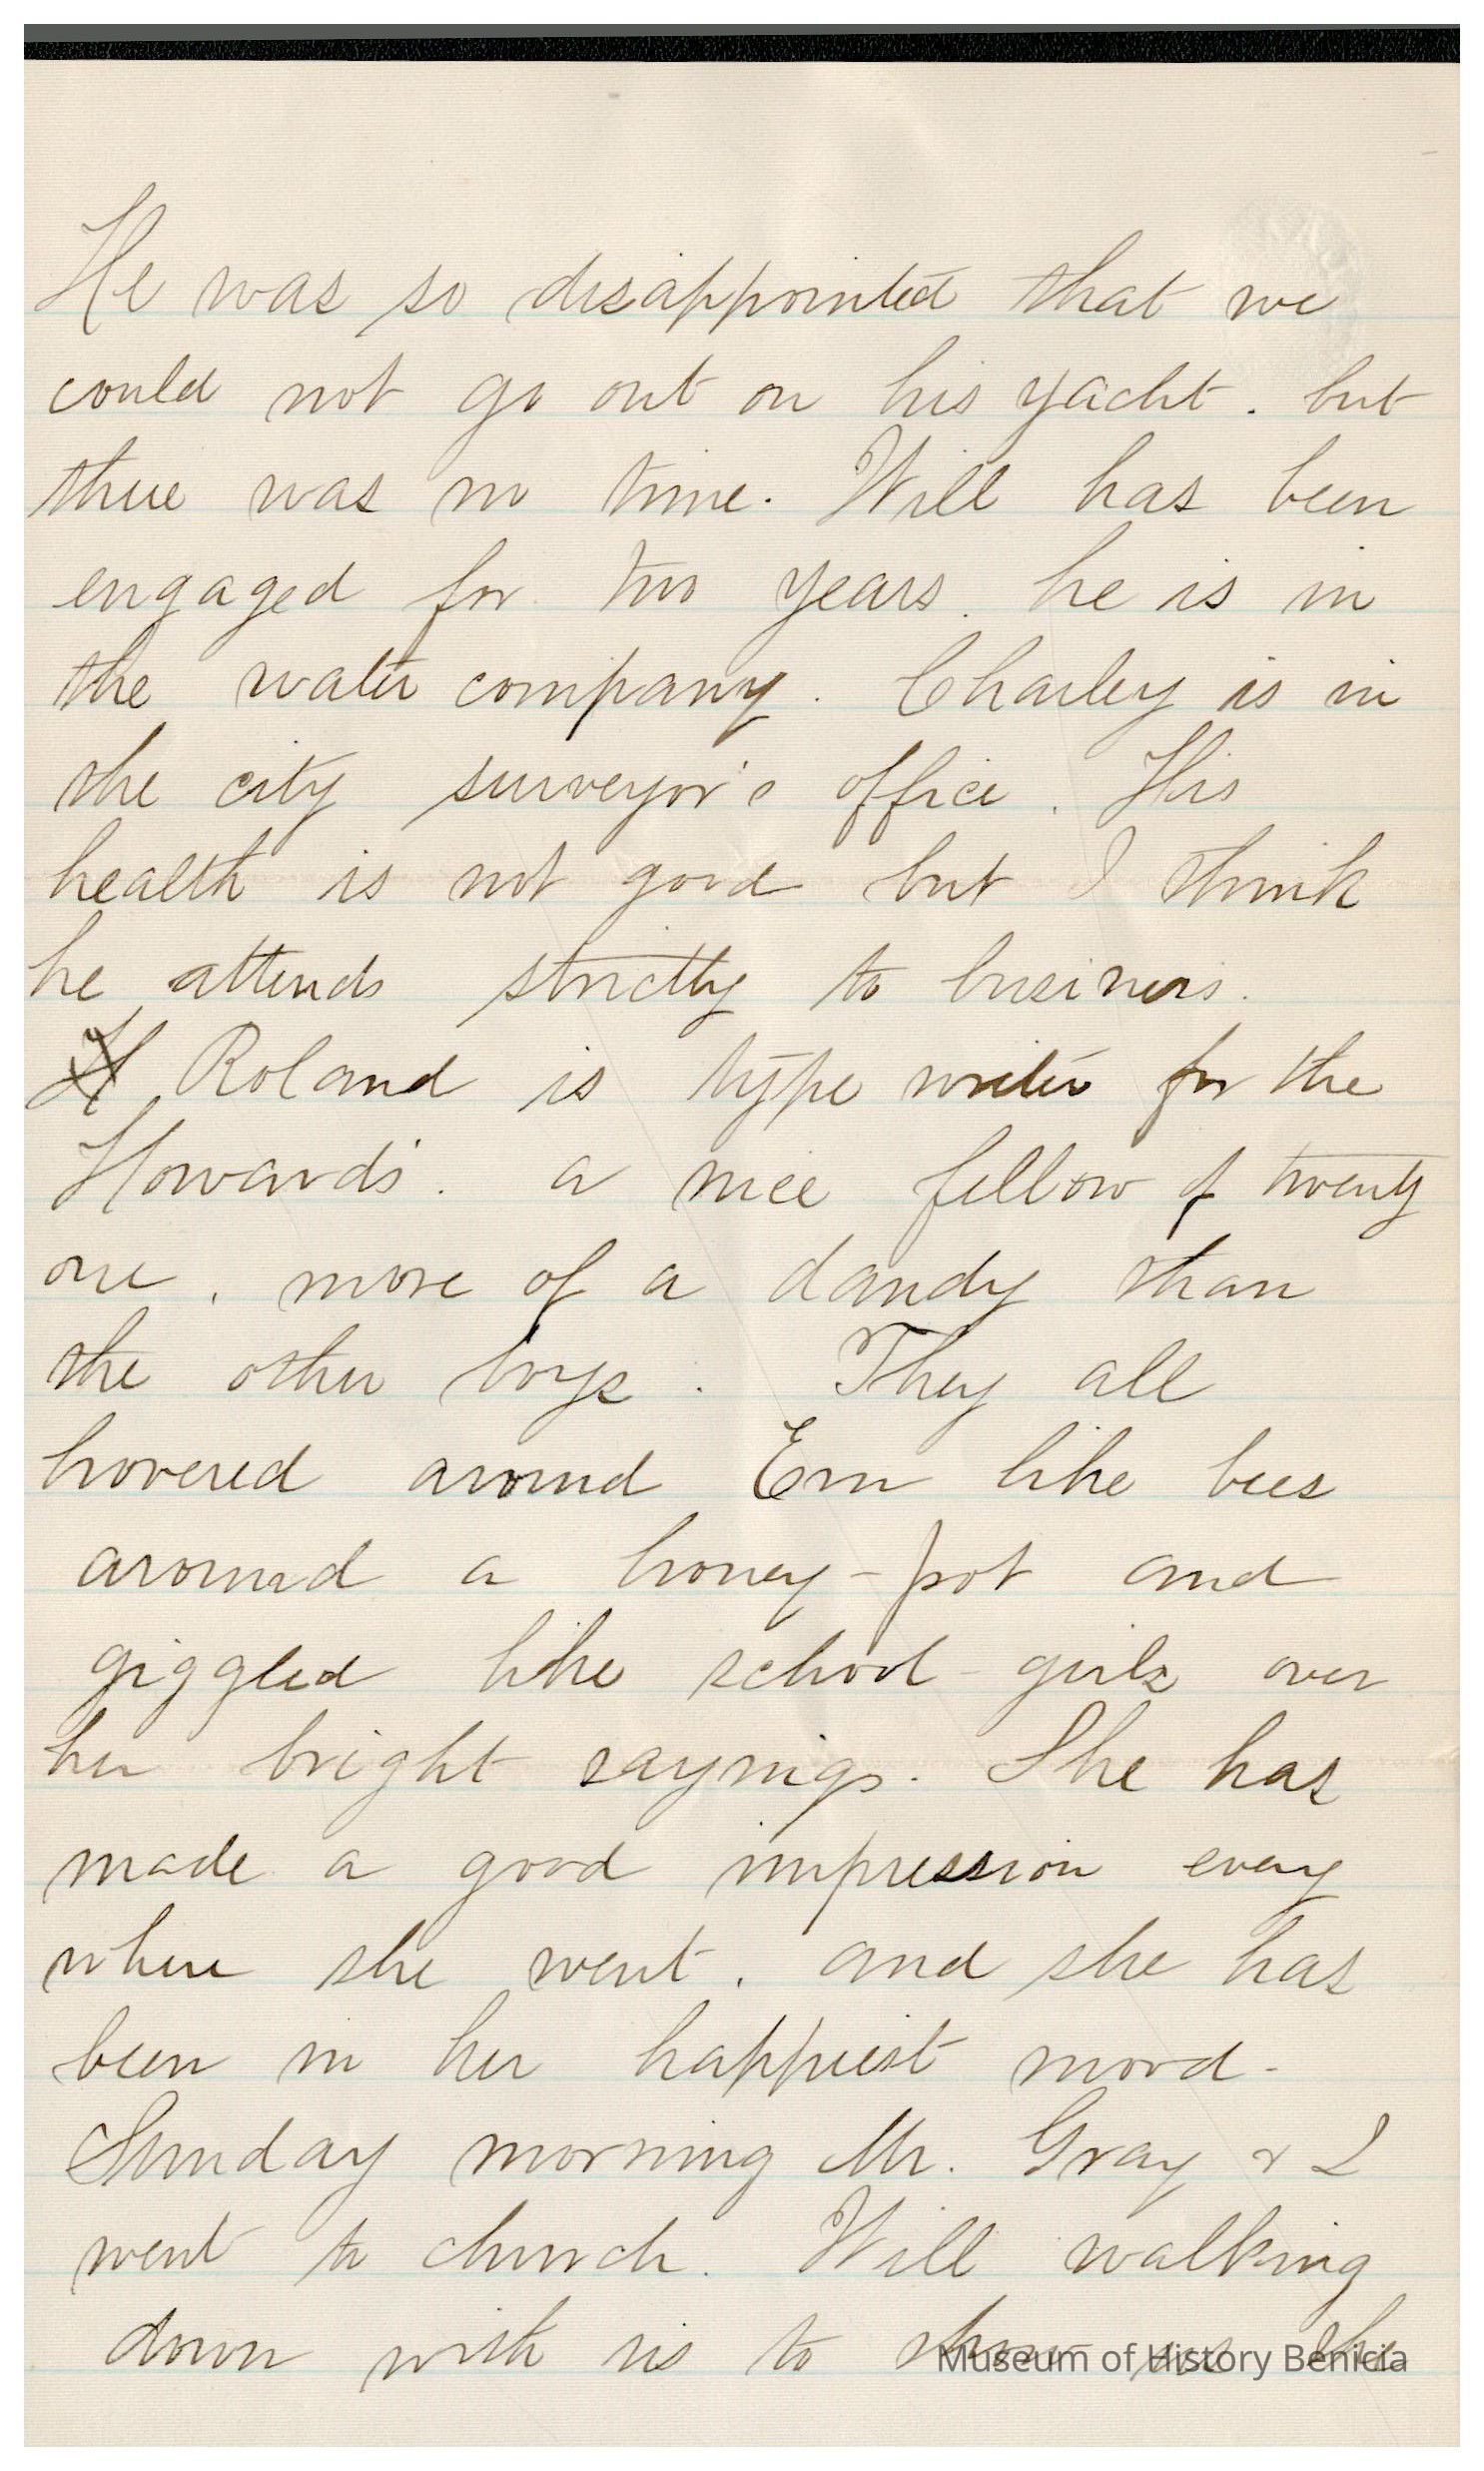 He was so disappointed that we
could not go out on his yacht. but
there was no time. Will has been
engaged for two years. he is in
the water company. Charley is in
the city surveyor's office. His
health is not good but I think
he attends strictly to business.
H Roland is type writer for the
Howards. a nice fellow of twenty
one, more of a dandy than
the other boys. They all
hovered around Em like bees
around a honey-pot and
giggled like school-girls over
her bright sayings. She has
made a good impression every
where she went, and she has
been in her happiest mood-
Sunday morning Mr. Gray & I
went to church. Will walking
down with us to show us the
Museum of History Benicia